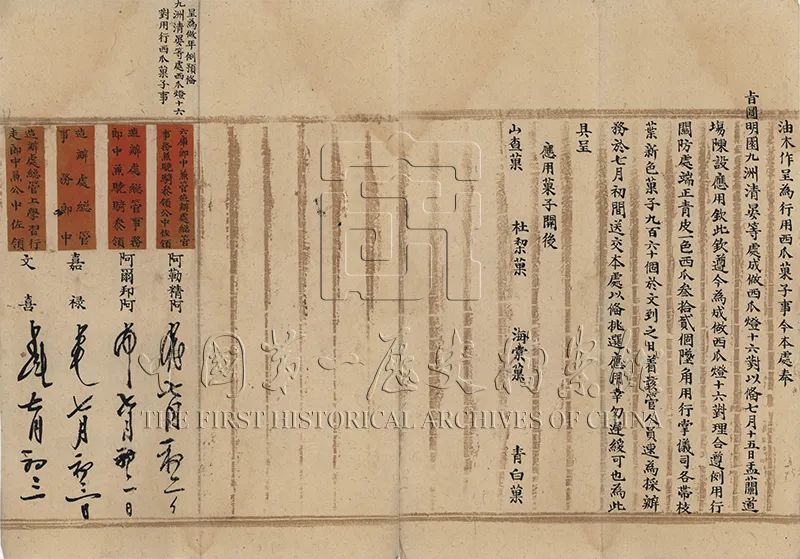 油木作呈為行用西瓜菓子事今本處奉
旨圓明園九洲清晏等處成做西瓜燈十六對以備七月十五日盂蘭道
場陳設應用欽此欽遵今為成做西瓜燈十六對理合遵例用行
關防處端正青皮一色西瓜叁拾貳個隨角用行掌儀司各帶枝
葉新色菓子九百六十個於文到之日著該管人員速為採辦
務於七月初間送交本處以備挑選應用幸勿遲緩可也為此
具呈
應用菓子開後
山查菓 杜梨菓 海棠菓 青白菓
呈為做年例預備
九洲清晏等處西瓜燈十六
對用行西瓜菓子事
六庫郎中兼造辦處總管
事務兼驍騎參領公中佐領
阿勒精阿
七月初二日
造辦處總管事務
郎中兼驍騎參領
阿爾邦阿
七月初二日
造辦處總管
事務郎中
嘉祿
七月初二日
造辦處總管上學習行
走郎中兼公中佐領
文喜
七月初二
中國第一歷史檔案館
THE FIRST HISTORICAL ARCHIVES OF CHINA